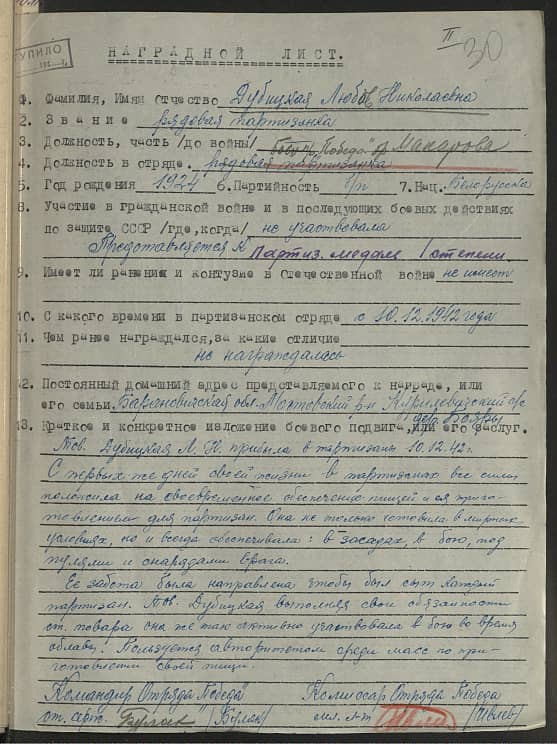 II 30
УПИЛО
НАГРАДНОЙ ЛИСТ.
1. Фамилия, Имя Отчество Дубицкая Любовь Николаевна
2. Звание рядовая партизанка
3. Должность, часть /до войны/ "Победа" Макарова
4. Должность в отряде. рядовая партизанка
5. Год рождения 1924 6. Партийность б/п 7. Нац. Белоруска
8. Участие в гражданской войне и в последующих боевых действиях
по защите СССР /где, когда/ не участвовала
Представляется к Партиз. медаль I степени
9. Имеет ли ранения и контузию в Отечественной войне не имеет
10. С какого времени в партизанском отряде с 10.12.1942 года
11. Чем ранее награждался, за какие отличие
не награждалась
12. Постоянный домашний адрес представляемого к награде, или
его семьи. Барановичская обл. р-н с/с
дер. Бояры
13. Краткое и конкретное изложение боевого подвига, или его заслуг.
Тов. Дубицкая Л. Н. прибыла в партизаны 10.12.42 г.
С первых же дней своей жизни в партизанах все силы
положила на своевременное обеспечение пищей и ея приго-
товлением для партизан. Она не только готовила в мирных
условиях, но и всегда обеспечивала: в засадах, в бою, под
пулями и снарядами врага.
Ее забота была направлена чтобы был сыт каждый
партизан. Тов. Дубицкая выполняя свои обязанности
ст. повара она же так активно участвовала в бою во время
облавы. Пользуется авторитетом среди масс по при-
готовлении своей пищи.
Командир Отряда Победа Комиссар Отряда Победа
ст. серж. Булак /Булак/ мл. л-т /Ивлев/